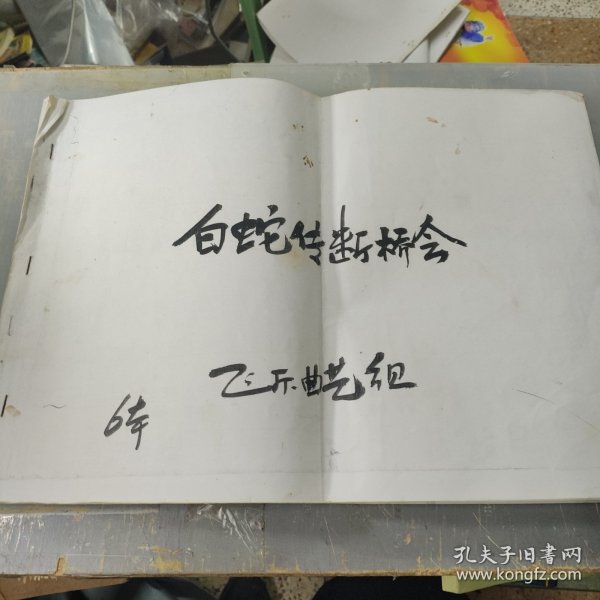 白蛇传断桥会
飞乐曲艺组
6本
孔夫子旧書网
www.kongfz.com